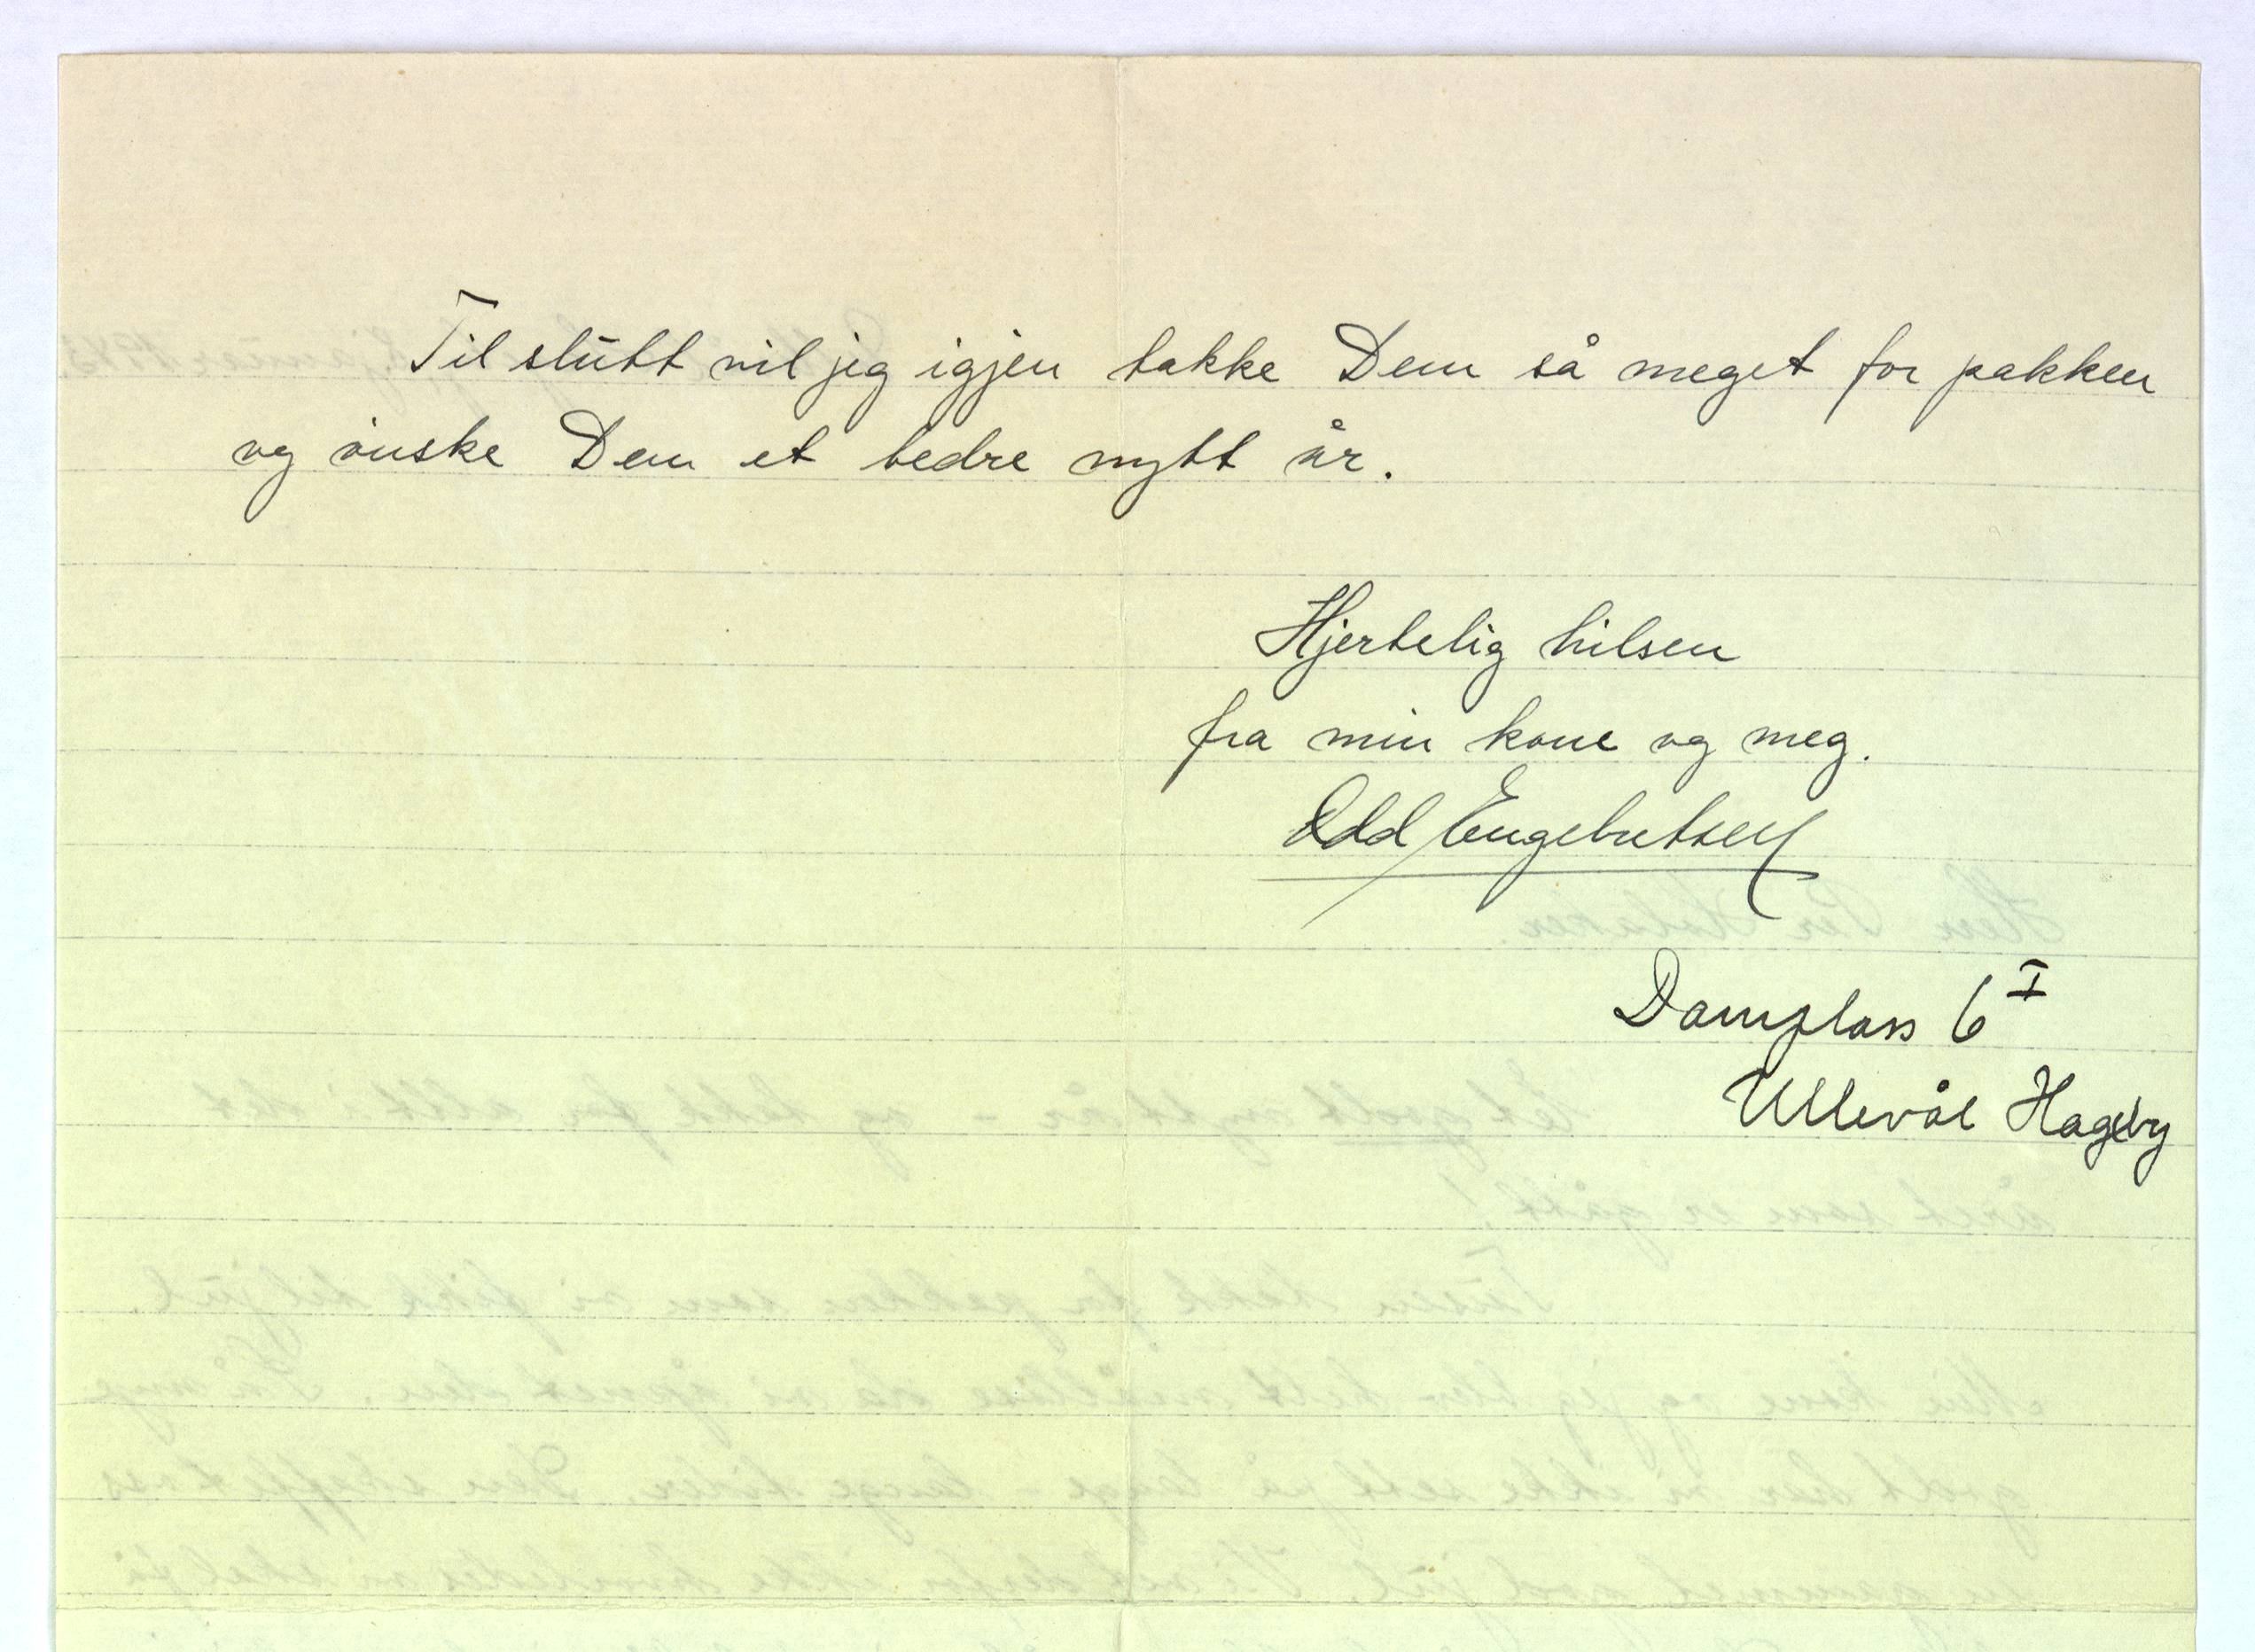 Til slutt vil jeg igjen takke Dem så meget for pakken
og ønske Dem et bedre nytt år.
Hjertelig hilsen
fra min kone og meg.
Odd Engebretsen
Damplass 6 I
Ullevål Hageby